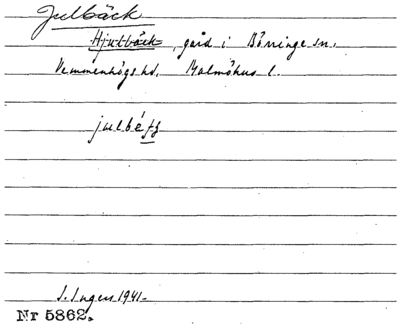 Julbäck
Hjulbäck, gård i Börringe sn.
Vemmenhögs hd. Malmöhus l.
julbé
S. Ingers 1941.
Nr 5862.